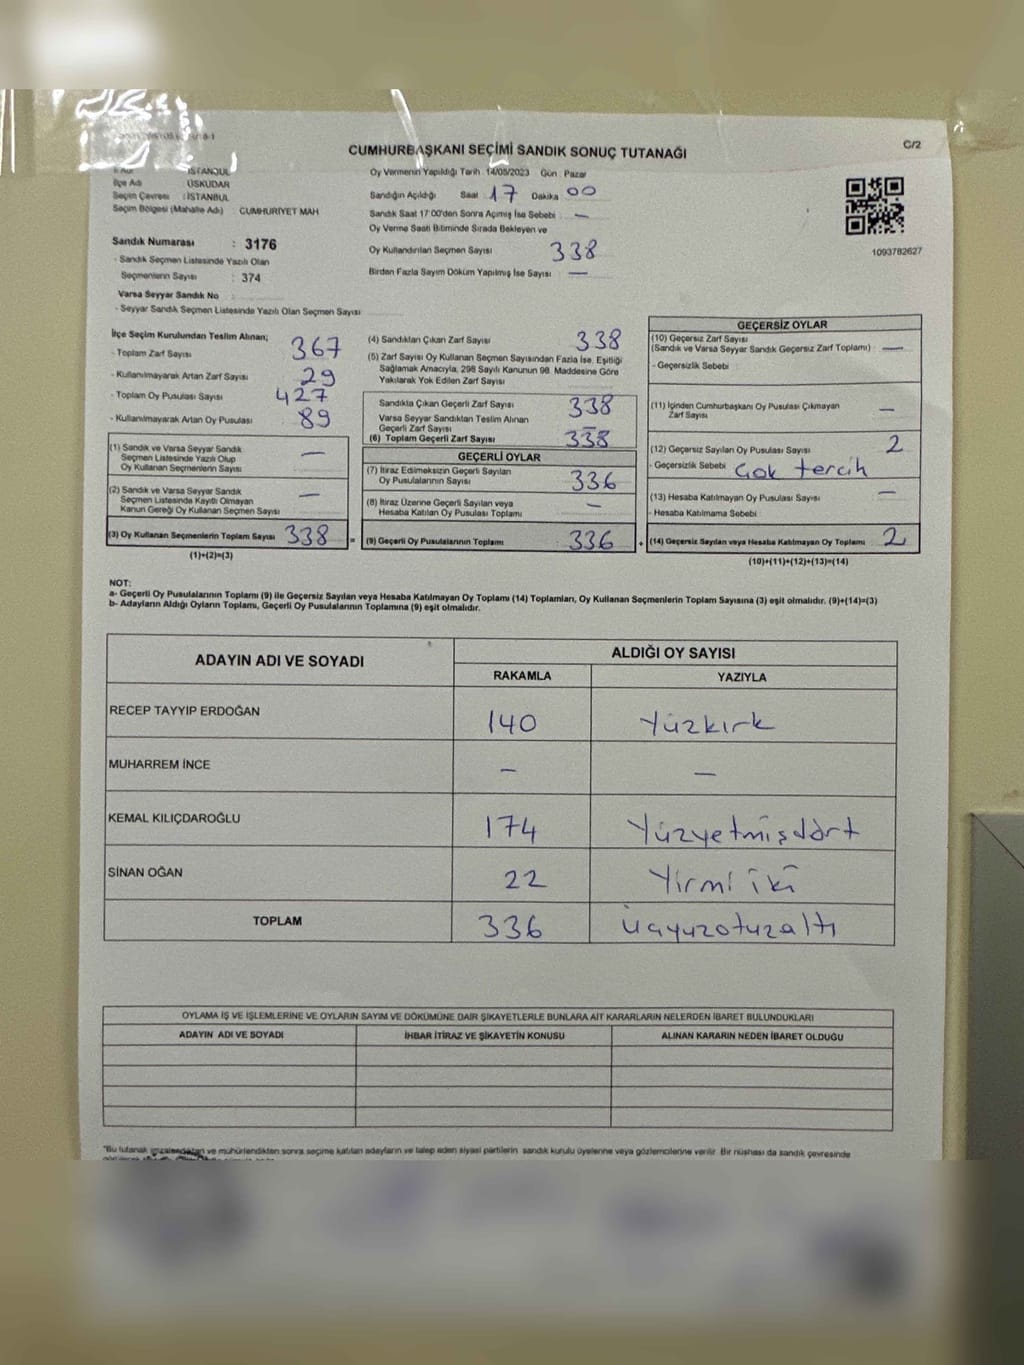 CUMHURBAŞKANI SEÇİMİ SANDIK SONUÇ TUTANAĞI
C/2
İl Adı : İSTANBUL
İlçe Adı : ÜSKÜDAR
Seçim Çevresi : İSTANBUL
Seçim Bölgesi (Mahalle Adı) : CUMHURİYET MAH
Sandık Numarası : 3176
- Sandık Seçmen Listesinde Yazılı Olan
Seçmenlerin Sayısı : 374
Varsa Seyyar Sandık No
- Seyyar Sandık Seçmen Listesinde Yazılı Olan Seçmen Sayısı
Oy Vermenin Yapıldığı Tarih : 14/05/2023 Gün : Pazar
Sandığın Açıldığı Saat 17 Dakika 00
Sandık Saat 17:00'den Sonra Açımış İse Sebebi : —
Oy Verme Saati Bitiminde Sırada Bekleyen ve
Oy Kullandırılan Seçmen Sayısı 338
Birden Fazla Sayım Döküm Yapılmış İse Sayısı : —
1093782627
İlçe Seçim Kurulundan Teslim Alınan;
- Toplam Zarf Sayısı 367
- Kullanılmayarak Artan Zarf Sayısı 29
- Toplam Oy Pusulası Sayısı 427
- Kullanılmayarak Artan Oy Pusulası 89
(1) Sandık ve Varsa Seyyar Sandık
Seçmen Listesinde Yazılı Olup
Oy Kullanan Seçmenlerin Sayısı —
(2) Sandık ve Varsa Seyyar Sandık
Seçmen Listesinde Kayıtlı Olmayan
Kanun Gereği Oy Kullanan Seçmen Sayısı —
(3) Oy Kullanan Seçmenlerin Toplam Sayısı 338 =
(1)+(2)=(3)
(4) Sandıktan Çıkan Zarf Sayısı 338
(5) Zarf Sayısı Oy Kullanan Seçmen Sayısından Fazla İse, Eşitliği
Sağlamak Amacıyla, 298 Sayılı Kanunun 98. Maddesine Göre
Yakılarak Yok Edilen Zarf Sayısı
Sandıkta Çıkan Geçerli Zarf Sayısı 338
Varsa Seyyar Sandıktan Teslim Alınan
Geçerli Zarf Sayısı —
(6) Toplam Geçerli Zarf Sayısı 338
GEÇERLİ OYLAR
(7) İtiraz Edilmeksizin Geçerli Sayılan
Oy Pusulalarının Sayısı 336
(8) İtiraz Üzerine Geçerli Sayılan veya
Hesaba Katılan Oy Pusulası Toplamı —
(9) Geçerli Oy Pusulalarının Toplamı 336 +
GEÇERSİZ OYLAR
(10) Geçersiz Zarf Sayısı
(Sandık ve Varsa Seyyar Sandık Geçersiz Zarf Toplamı) : —
- Geçersizlik Sebebi :
(11) İçinden Cumhurbaşkanı Oy Pusulası Çıkmayan
Zarf Sayısı —
(12) Geçersiz Sayılan Oy Pusulası Sayısı 2
- Geçersizlik Sebebi : Çok tercih
(13) Hesaba Katılmayan Oy Pusulası Sayısı —
- Hesaba Katılmama Sebebi
(14) Geçersiz Sayılan veya Hesaba Katılmayan Oy Toplamı 2
(10)+(11)+(12)+(13)=(14)
NOT:
a- Geçerli Oy Pusulalarının Toplamı (9) ile Geçersiz Sayılan veya Hesaba Katılmayan Oy Toplamı (14) Toplamları, Oy Kullanan Seçmenlerin Toplam Sayısına (3) eşit olmalıdır. (9)+(14)=(3)
b- Adayların Aldığı Oyların Toplamı, Geçerli Oy Pusulalarının Toplamına (9) eşit olmalıdır.
ADAYIN ADI VE SOYADI
ALDIĞI OY SAYISI
RAKAMLA YAZIYLA
RECEP TAYYIP ERDOĞAN 140 Yüzkırk
MUHARREM İNCE — —
KEMAL KILIÇDAROĞLU 174 Yüzyetmişdört
SİNAN OĞAN 22 Yirmi iki
TOPLAM 336 Üçyüzotuzaltı
OYLAMA İŞ VE İŞLEMLERİNE VE OYLARIN SAYIM VE DÖKÜMÜNE DAİR ŞİKAYETLERLE BUNLARA AİT KARARLARIN NELERDEN İBARET BULUNDUKLARI
ADAYIN ADI VE SOYADI İHBAR İTİRAZ VE ŞİKAYETİN KONUSU ALINAN KARARIN NEDEN İBARET OLDUĞU
"Bu tutanak imzalandıktan ve mühürlendikten sonra seçime katılan adayların ve talep eden siyasi partilerin sandık kurulu üyelerine veya gözlemcilerine verilir. Bir nüshası da sandık çevresinde